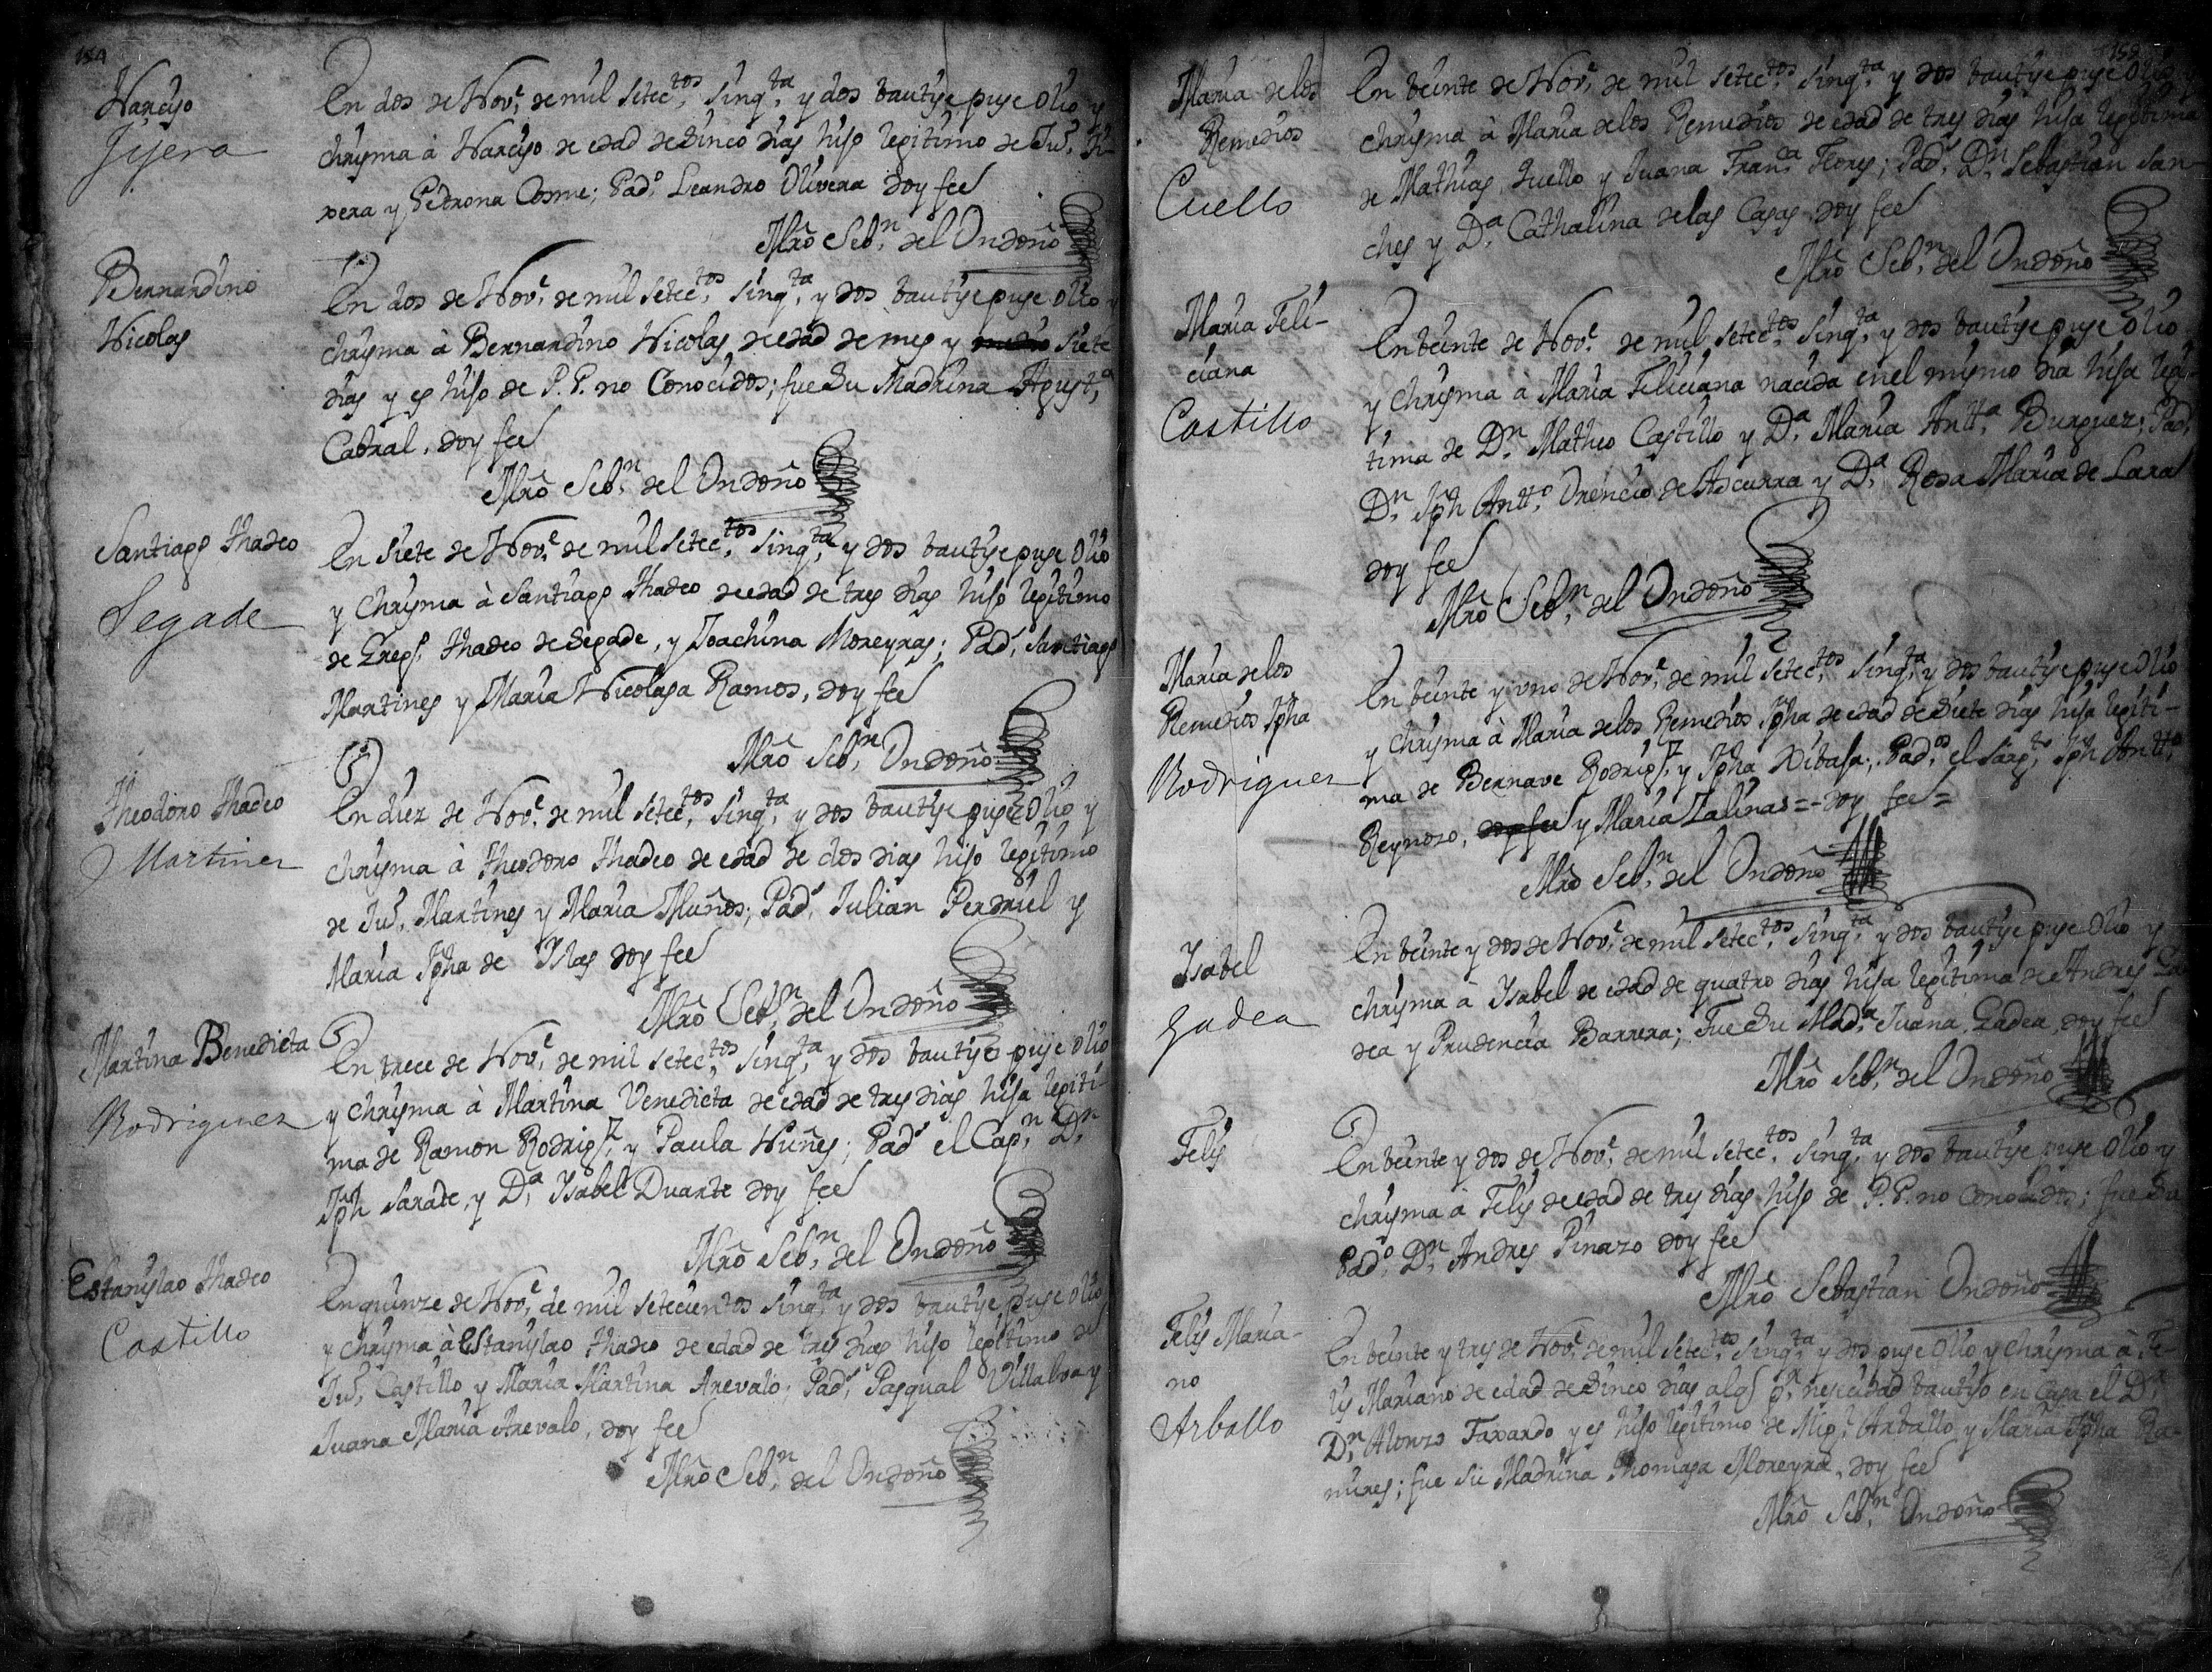 Narciso
Tijera
En dos de Nov.e de mil setec.tos sinq.ta y dos bautise puse Olio y
chrisma à Narciso de edad de Sinco dias hijo legitimo de Ju.n Ti-
xera y Petrona Cosme; Pad.o Leandro Olivera doy fee
Mrô Seb.n del Ondoño
Bernardino
Nicolas
En dos de Nov.e de mil setec.tos sinq.ta y dos bautise puse Olio y
chrisma à Bernardino Nicolas de edad de mes y medio siete
dias y es hijo de P. P. no Conocidos; fue Su Madrina Agust.a
Cabral, doy fee
Mrô Seb.n del Ondoño
Santiago Thadeo
Segade
En siete de Nov.e de mil setec.tos sinq.ta y dos bautise puse Olio
y Chrisma à Santiago Thadeo de edad de tres dias hijo legitimo
de Greg.o Thadeo de Segade, y Joachina Moreyras; Pad.s Santiago
Martines y Maria Nicolasa Ramos, doy fee
Mrô Seb.n Ondoño
Theodoro Thadeo
Martinez
En diez de Nov.e de mil setec.tos sinq.ta y dos bautise puse Olio y
chrisma à Theodoro Thadeo de edad de dos dias hijo legitimo
de Ju.n Martines y Maria Muños; Pad.s Julian Perdriel y
Maria Jpha de Islas doy fee
Mrô Seb.n del Ondoño
Martina Benedicta
Rodriguez
En trece de Nov.e de mil setec.tos sinq.ta y dos bautise puse Olio
y chrisma à Martina Venedicta de edad de tres dias hija legiti-
ma de Ramon Rodrig.z y Paula Nuñes; Pad.s el Cap.n D.n
Jph Sarate, y D.a Isabel Duarte doy fee
Mrô Seb.n del Ondoño
Estanislao Thadeo
Castillo
En quinze de Nov.e de mil setecientos sinq.ta y dos bautise puse Olio
y chrisma à Estanislao Thadeo de edad de tres dias hijo legitimo de
Ju.n Castillo y Maria Martina Arevalo; Pad.s Pasqual Villalva y
Juana Maria Arevalo, doy fee
Mrô Seb.n del Ondoño
Maria de los
Remedios
Cuello
En beinte de Nov.e de mil setec.tos sinq.ta y dos bautise puse Olio y
chrisma à Maria de los Remedios de edad de tres dias hija legitima
de Mathias Cuello y Juana Fran.ca Flores; Pad.s D.n Sebastian San-
ches y D.a Cathalina de las Casas doy fee
Mrô Seb.n del Ondoño
Maria Feli-
ciana
Castillo
En beinte de Nov.e de mil setec.tos sinq.ta y dos bautise puse Olio
y Chrisma à Maria Feliciana nacida en el mismo dia hija legi-
tima de D.n Matheo Castillo y D.a Maria Antt.a Burguez; Pad.s
D.n Jph Antt.o Orencio de Ascurra y D.a Rosa Maria de Lara
doy fee
Mrô Seb.n del Ondoño
Maria de los
Remedios Jpha
Rodriguez
En beinte y uno de Nov.e de mil setec.tos sinq.ta y dos bautise puse Olio
y chrisma à Maria de los Remedios Jpha de edad de Siete dias hija legiti-
ma de Bernave Rodrig.z y Jpha Ribasa; Pad.os el Sarg.to Jph Antt.o
Reynoso, doy fee y Maria Salinas = doy fee =
Mrô Seb.n del Ondoño
Isabel
Gadea
En beinte y dos de Nov.e de mil setec.tos sinq.ta y dos bautise puse Olio y
chrisma à Ysabel de edad de quatro dias hija legitima de Andres Ga-
dea y Prudencia Barrera; Fue Su Mad.a Juana Gadea, doy fee
Mrô Seb.n del Ondoño
Felis
En beinte y dos de Nov.e de mil setec.tos sinq.ta y dos bautise puse Olio y
chrisma à Felis de edad de tres dias hijo de P. P. no conocidos; fue Su
Pad.o D.n Andres Pinazo doy fee
Mrô Sebastian Ondoño
Felis Maria-
no
Arballo
En beinte y tres de Nov.e de mil setec.tos sinq.ta y dos puse Olio y chrisma à Fe-
lis Mariano de edad de Sinco dias al q.l p.r nesecidad bautiso en Casa el D.r
D.n Alonzo Faxardo y es hijo legitimo de Mig.l Arballo y Maria Jpha Ra-
mires; fue su Madrina Thomasa Moreyra, doy fee
Mrô Seb.n Ondoño